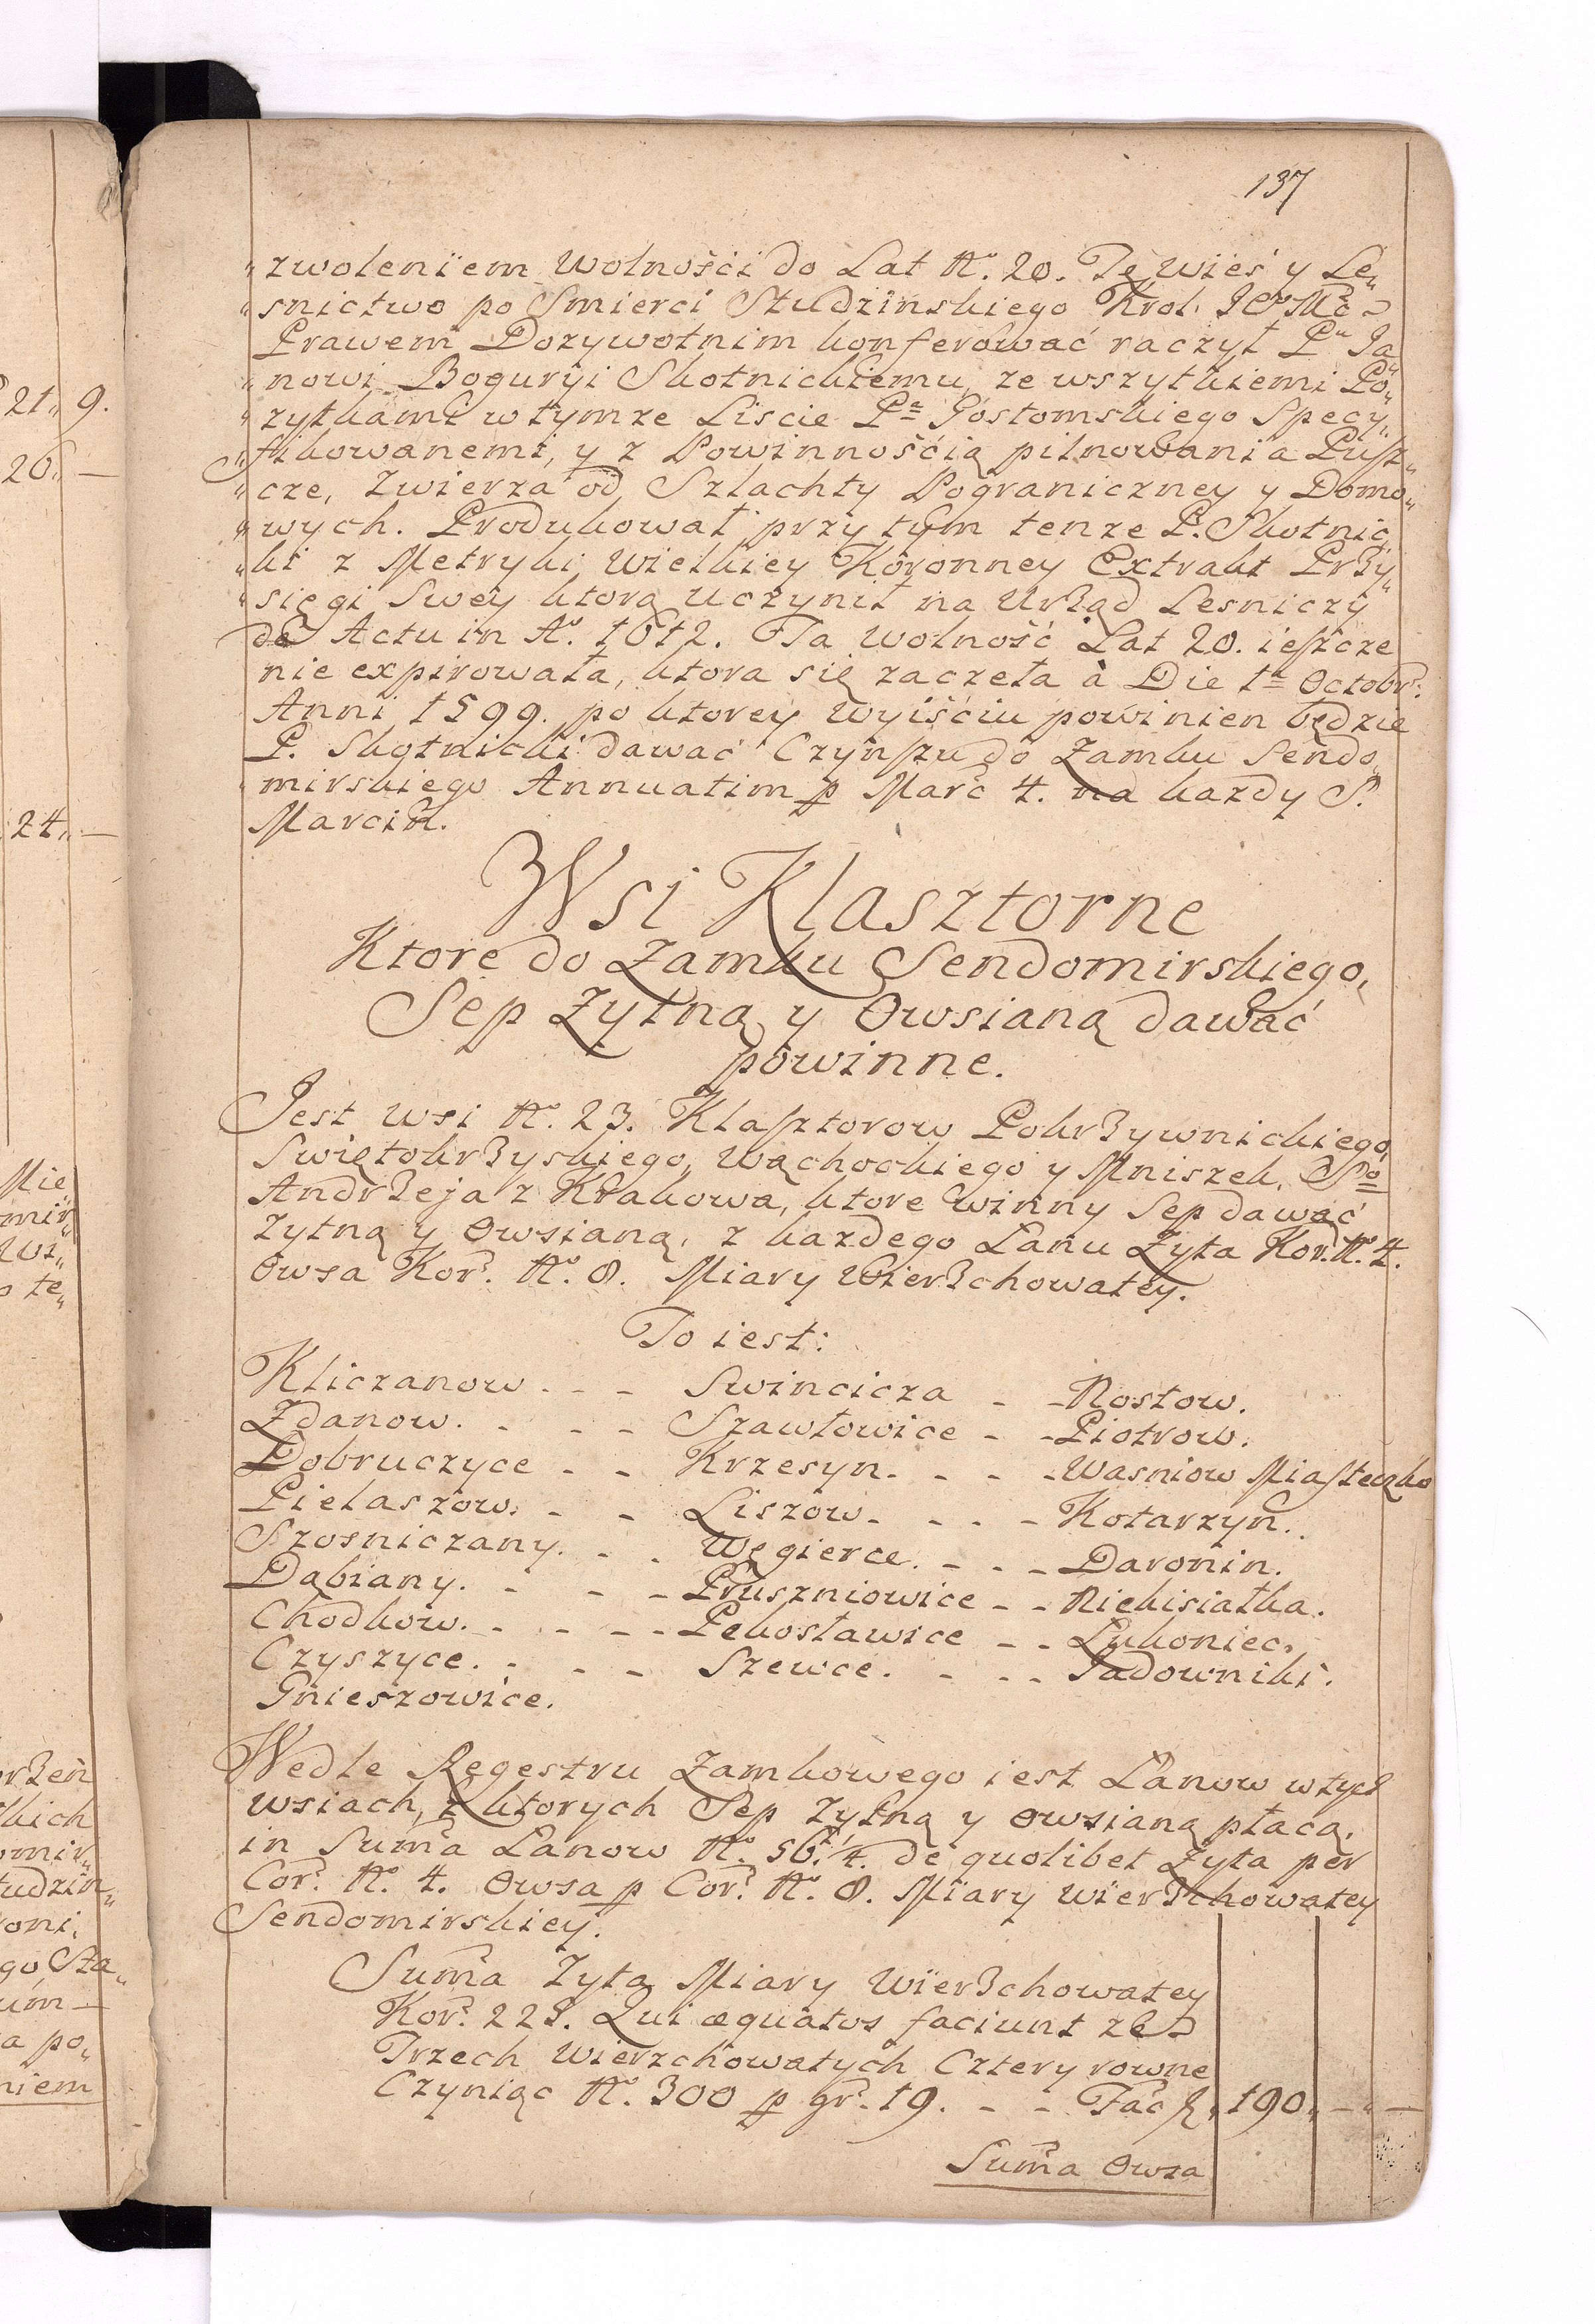 137
„zwoleniem wolnośći do Lat No. 20. Tę wieś y Le„
„snictwo po Smierci Studzinskiego Krol JEo Mć
Prawem Dozywotnim konferować raczył Pu Ja„
„nowi Boguryi Skotnickiemu, ze wszytkiemi Po„
„zytkami w tymze Liscie Pa Gostomskiego Specy„
„fikowanemi, y z Powinnośćią pilnowania Puſz„
„cze, Zwierza od Szlachty Pograniczney y Domo„
„wych. Produkował przy tym tenze P. Skotnic„
„ki z Metryki Wielkiey Koronney Extrakt Przy„
„sięgi Swey ktorą uczynił na Urząd Lesniczy
de Actu in Ao. 1612. Ta wolność Lat 20. ieſzcze
nie expirowała, ktora się zaczeła à Die 1a Octobr:
Anni 1599. po ktorey wyiśćiu powinien będzie
P. Skotnicki dawać Czynſzu do Zamku Sendo„
„mirskiego Annuatim p Marc 4. na kazdy S.
Marcin.
Wsi Klasztorne
Ktore do Zamku Sendomirskiego,
Sep Zytną y Owsianą dawać
powinne.
Jest wsi No. 23. Klaſztorow Pokrzywnickiego,
Swiętokrzyskiego, Wąchockiego y Mniszek, So
Andrzeja z Krakowa, ktore winny Sep dawać
Zytną y Owsianą, z kazdego Lanu Zyta Kor. No. 4.
Owsa Kor. No. 8. Miary Wierzchowatey.
To iest:
Kliczanow. - - Swincicza - - Rostow.
Zdanow. - - - Szawłowice - - Piotrow.
Dobruczyce - - Krzesyn. - - - Wasniow Miaſteczko
Pielaszow. - - Liszow. - - - Kotarzyn.
Szosniczany. - - Węgierce. - - - Daronin.
Dąbiany. - - - Pruszniowice - - Niekisiałka.
Chodkow. - - - - Pekosławice - - Lukoniec.
Czyszyce. - - - Szewce. - - - Jadowniki.
Gnieszowice.
Wedle Regestru Zamkowego iest Lanow w tych
wsiach, z ktorych Sep Zytną y Owsianą płacą,
in Suma Lanow No. 56 1/4. de quolibet Zyta per
Cor. No. 4. Owsa p Cor. No. 8. Miary Wierzchowatey
Sendomirskiey.
Suma Zyta Miary Wierzchowatey
Kor. 225. Qui æquatos faciunt ze
Trzech Wierzchowatych Cztery rowne
Czyniąc No. 300 p gr. 19. - - Fac ƒ. 190„ — „ —
Suma Owsa